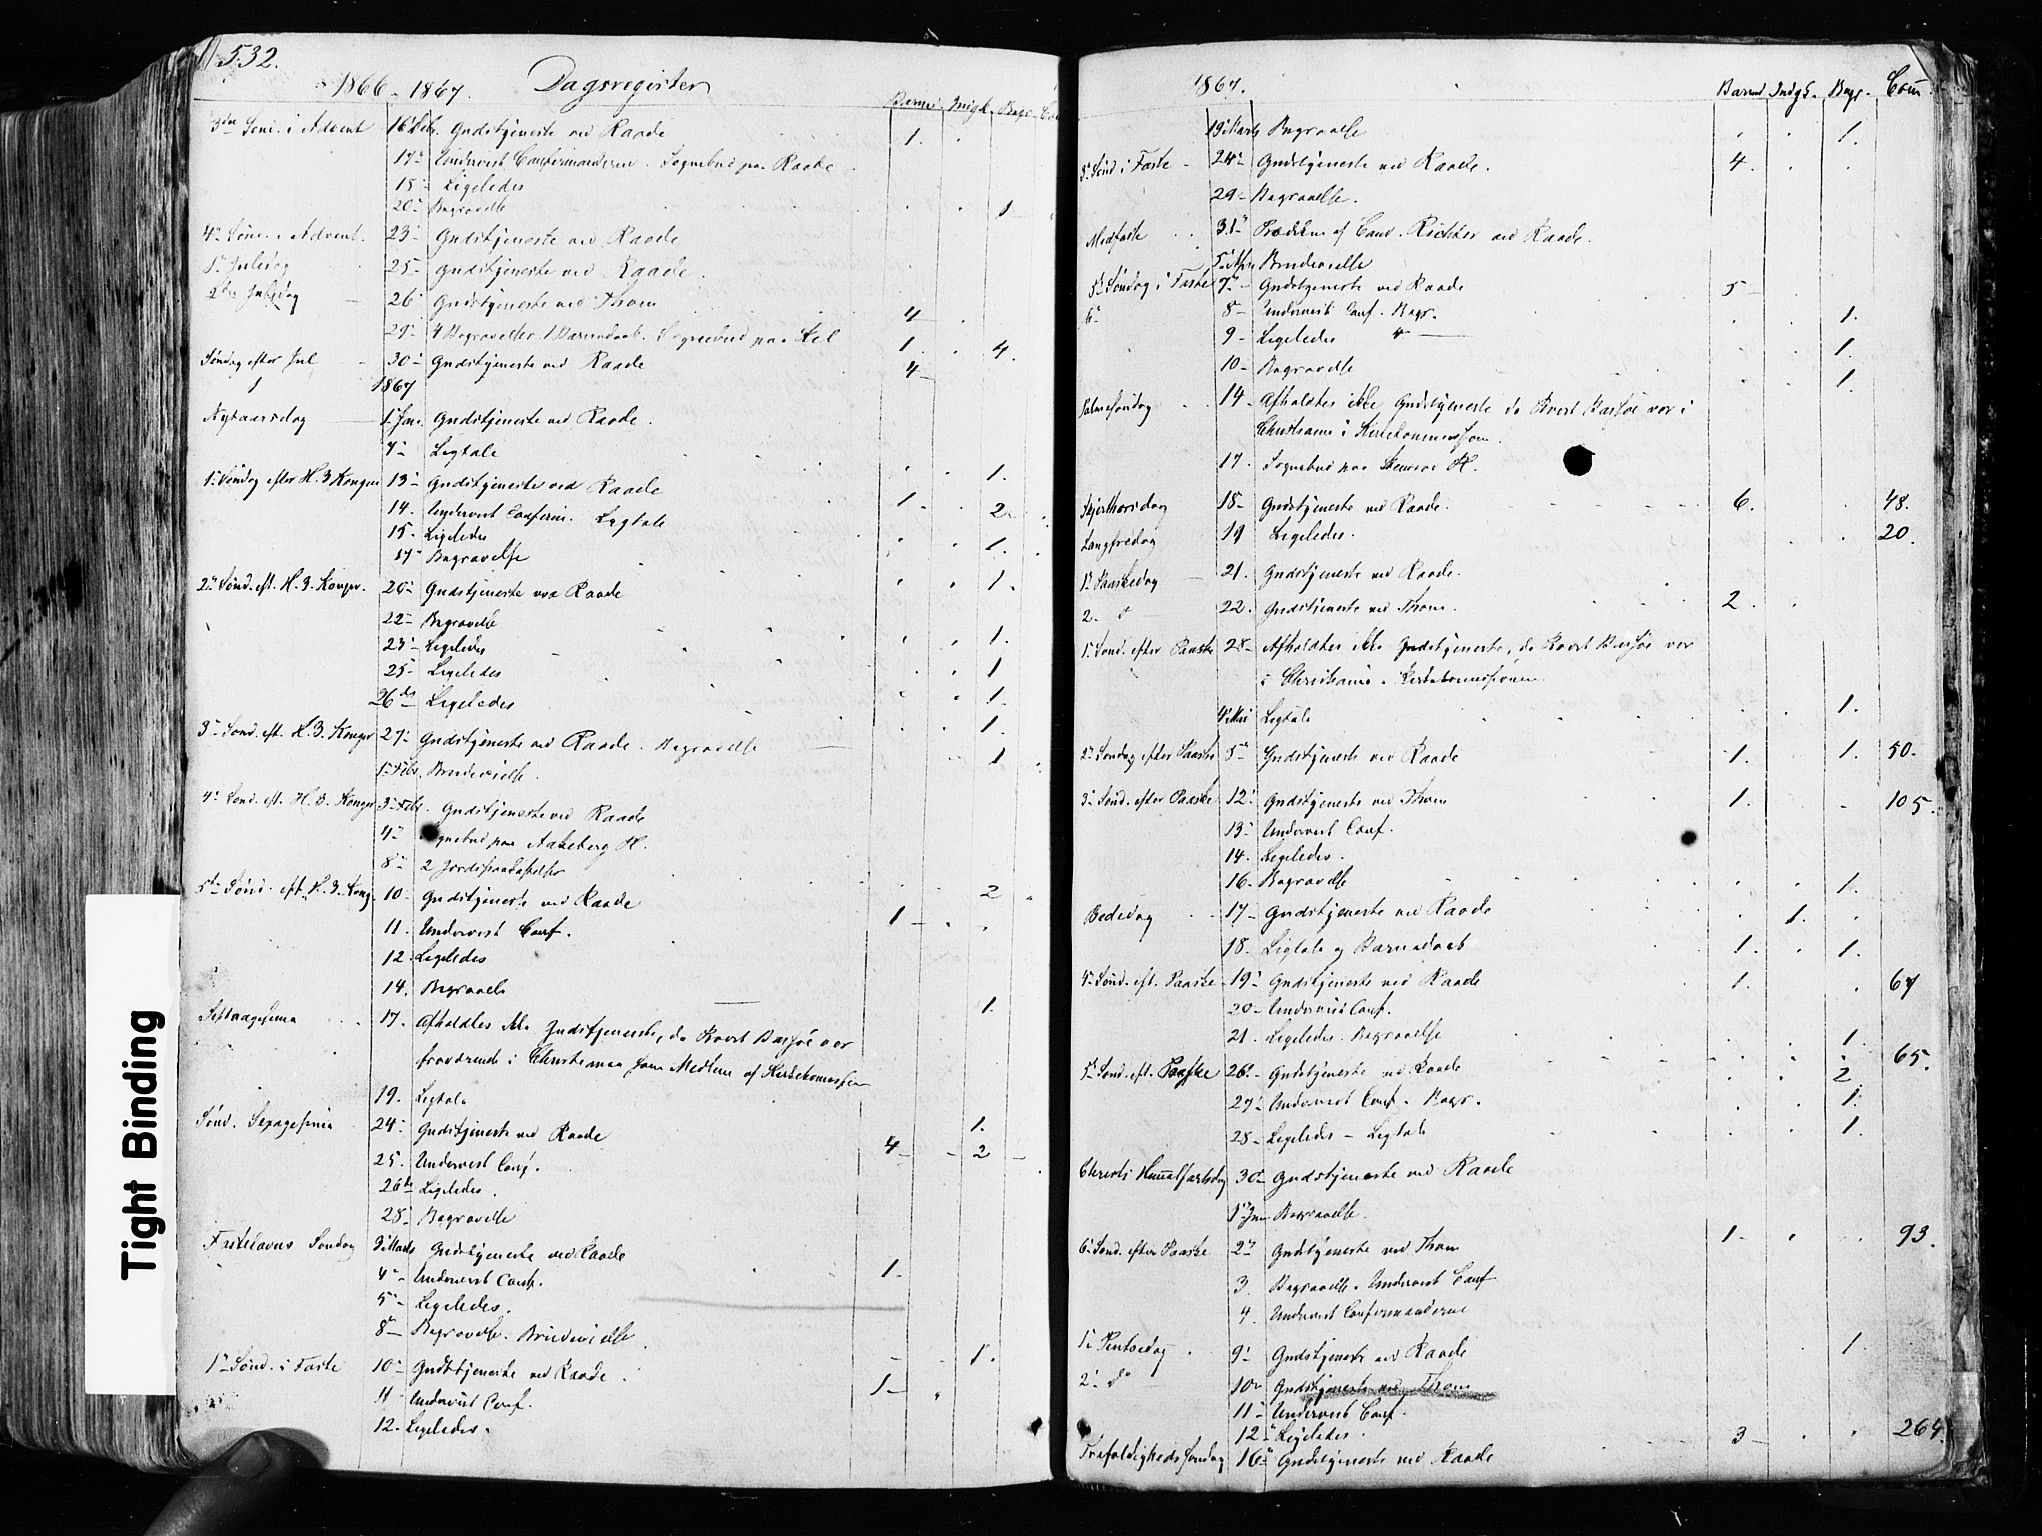 532.
1866 - 1867. Dagsregister
Barned. Indgd. Begr. Com
3die Sønd. i Advent 16 Gudstjeneste ved Raade 1.
17 Undervist Confirmanderne. Sognebud paa Raade
18 Ligeledes
20 Begravelse 1
4 Sønd. i Advent. 23 Gudstjeneste ved Raade
1 Juledag 25 Gudstjeneste ved Raade.
2den Juledag 26 Gudstjeneste ved Thom 4
29 4 Begravelser. 1 Barnedaab. Sognebud paa 1. 4.
Søndag efter Jul 30 Gudstjeneste ved Raade 4
1867
Nytaarsdag 1 Jan. Gudstjeneste ved Raade.
7 Ligtale 1.
1 Søndag efter H. 3 Konger 13 Gudstjeneste ved Raade 1.
14. Undervist Confirm. Ligtale 2
15. Ligeledes
17 Begravelse 1.
2 Sønd. eft. H. 3. Konger. 20 Gudstjeneste ved Raade 1.
22 Begravelse
23 Ligeledes 1.
25 Ligeledes 1
26de Ligeledes 1.
3 Sønd. eft. H. 3. Konger 27 Gudstjeneste ved Raade. Begravelse 1.
1 Febr. Brudevielse. 1
4 Sønd. eft. H. 3. Konger 3 Febr. Gudstjeneste ved Raade
4 Sognebud paa Aakeberg H.
8 2 Jordspaakastelser 2
5te Sønd. eft. H. 3. Kong. 10 Gudstjeneste ved Raade 1
11. Undervist Conf.
12. Ligeledes
14. Begravels 1.
Septuagesima 17. Afholdtes ikke Gudstjeneste, da Provst Bassøe var
fraværende i Christiania som Medlem af Kirkekommission
19. Ligtale 1.
Sønd. Sexagesima 24 Gudstjeneste ved Raade 4 2
25. Undervist Conf.
26de Ligeledes.
28 Begravelse
Fastelavns Søndag 3 Marts Gudstjeneste ved Raade 1.
4 Undervist Conf.
5 Ligeledes.
8 Begravelse. Brudevielse 1.
1 Sønd. i Faste 10 Gudstjeneste ved Raade. 1
11 Undervist Conf.
12. Ligeledes.
1867.
Barned Indgd. Begr. Com.
19 Marts Begravelse 1.
3 Sønd i Faste 24 Gudstjeneste ved Raade. 4.
29 Begravelse.
Midfaste 31 Prædiken af Cand. Richter ved Raade.
5 Apr. Brudevielse
5 Søndag i Faste 7 Gudstjeneste ved Raade 5
6 8 Undervist Conf. Begr. 1.
9 Ligeledes 1.
10 Begravelse 1.
Palmesøndag 14 Afholdtes ikke Gudstjeneste da Provst Bassøe var i
Christiania i Kirkekommission.
17. Sognebud paa H.
Skjærthorsdag 18 Gudstjeneste ved Raade. 6. 48.
Langfredag 19 Ligeledes. 20.
1 Paaskedag 21. Gudstjeneste ved Raade.
2. d 22. Gudstjeneste ved Thom. 2.
1 Sønd. efter Paaske 28 Afholdtes ikke Gudstjeneste, da Provst Bassøe var
i Christiania i Kirkekommission
4 Mai Ligtale 1.
2 Søndag efter Paaske 5 Gudstjeneste ved Raade 1. 1. 50
3 Sønd. efter Paaske 12 Gudstjeneste ved Thom 1. 105.
13 Undervist Conf.
14. Ligeledes.
16 Begravelse 1.
Bededag 17 Gudstjeneste ved Raade 1.
18. Ligtale og Barnedaab 1. 1.
4 Sønd. eft. Paaske 19 Gudstjeneste ved Raade 1. 67
20 Undervist Conf.
21. Ligeledes. Begravelse 1.
5 Sønd. eft. Paaske 26 Gudstjeneste ved Raade 2 65.
27 Undervist Conf. Begr. 1.
28 Ligeledes - Ligtale 1.
Christi Himmelfartsdag 30 Gudstjeneste ved Raade
1 Jun Begravelse.
6 Sønd. efter Paaske 2 Gudstjeneste ved Thom 1. 93.
3. Begravelse. Undervist Conf
4. Undervist Confirmanderne
1 Pintsedag 9 Gudstjeneste ved Raade 1.
2 do 10 Gudstjeneste ved Thom
11 Undervist Conf.
12 Ligeledes.
Trefoldighedssøndag 16 Gudstjeneste ved Raade 3 264.
Tight Binding